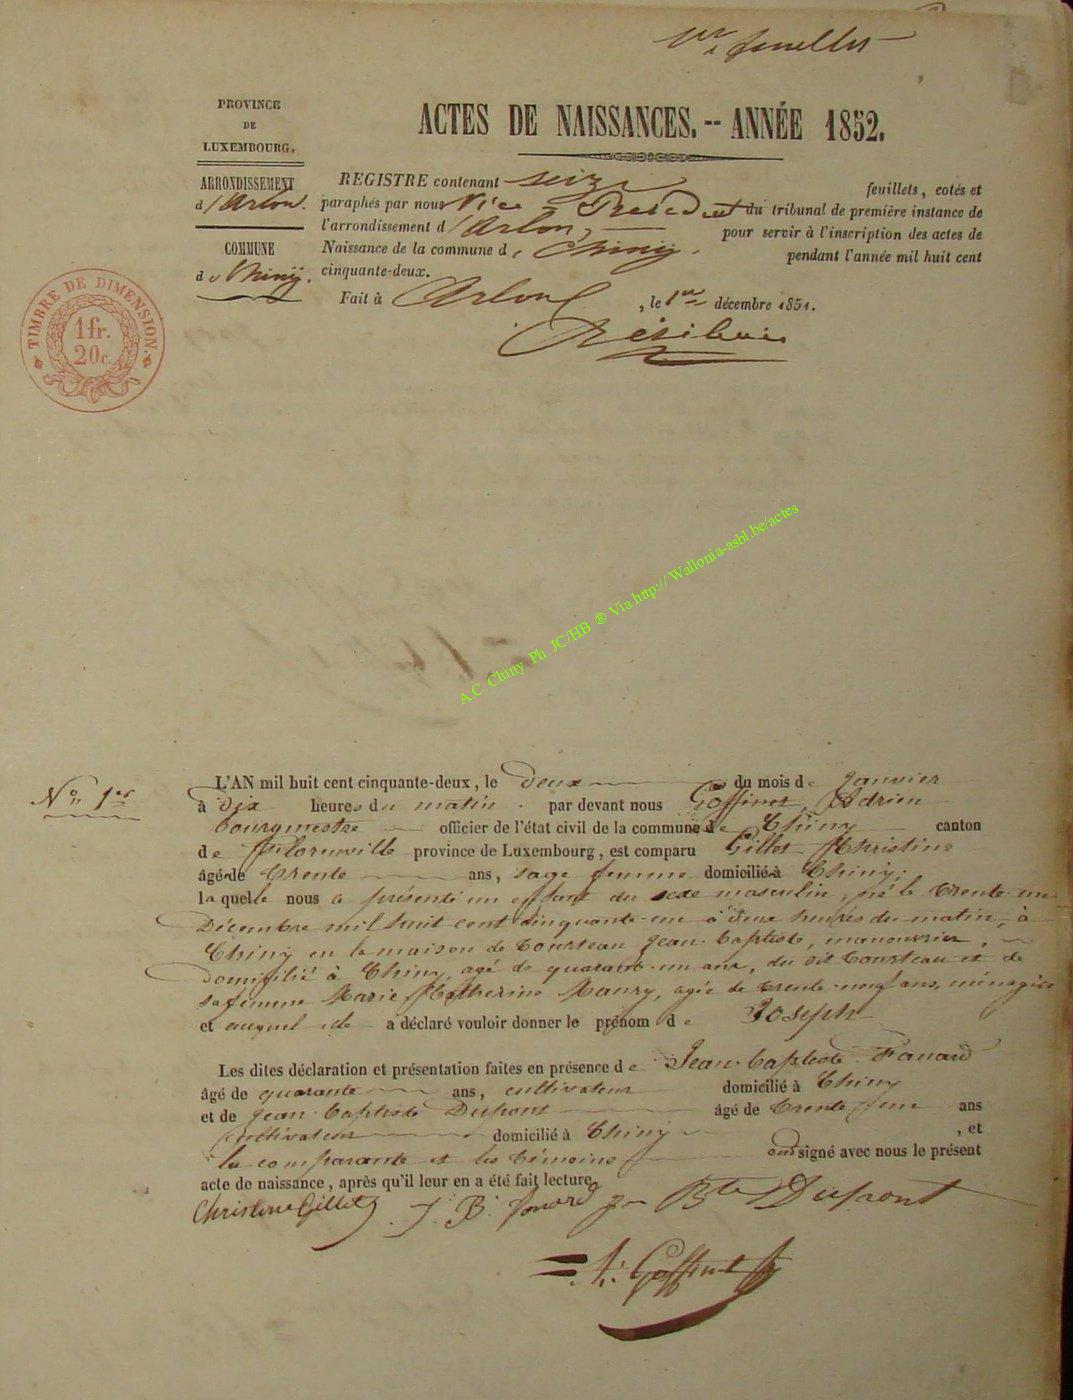 1er feuillet
PROVINCE
DE
LUXEMBOURG.
ARRONDISSEMENT
d'Arlon.
COMMUNE
de Chiny.
ACTES DE NAISSANCES.-- ANNÉE 1852.
REGISTRE contenant seize feuillets, cotés et
paraphés par nous Vice-Président du tribunal de première instance de
l'arrondissement d'Arlon, pour servir à l'inscription des actes de
Naissance de la commune de Chiny. pendant l'année mil huit cent
cinquante-deux.
Fait à Arlon, le 1er décembre 1851.
TIMBRE DE DIMENSION.
1fr.
20c.
A.C. Chiny Ph. JC/HB ® Via http://Wallonia-asbl.be/actes
No 1er
L'AN mil huit cent cinquante-deux, le deux du mois de janvier
à dix heures du matin. par devant nous Goffinet, Adrien
bourgmestre officier de l'état civil de la commune de Chiny canton
de Florenville province de Luxembourg, est comparu Gillet Christine
âgé de trente ans, sage femme domicilié à Chiny;
laquelle nous a présenté un enfant du sexe masculin, né le trente-un
Décembre mil huit cent cinquante-un à deux heures du matin, à
Chiny en la maison de Courteau Jean-baptiste, manouvrier,
domicilié à Chiny, agé de quarante-un ans, du dit Courteau et de
sa femme Marie Catherine Maury, agée de trente-neuf ans, ménagère
et auquel elle a déclaré vouloir donner le prénom de Joseph
Les dites déclaration et présentation faites en présence de Jean-baptiste Fanard
âgé de quarante ans, cultivateur domicilié à Chiny
et de Jean-Baptiste Dupont âgé de trente ans
cultivateur domicilié à Chiny, et
la comparante et les témoins ont signé avec nous le présent
acte de naissance, après qu'il leur en a été fait lecture.
Christine Gillet J. B. fanard Jn Bte Dupont
A. Goffinet